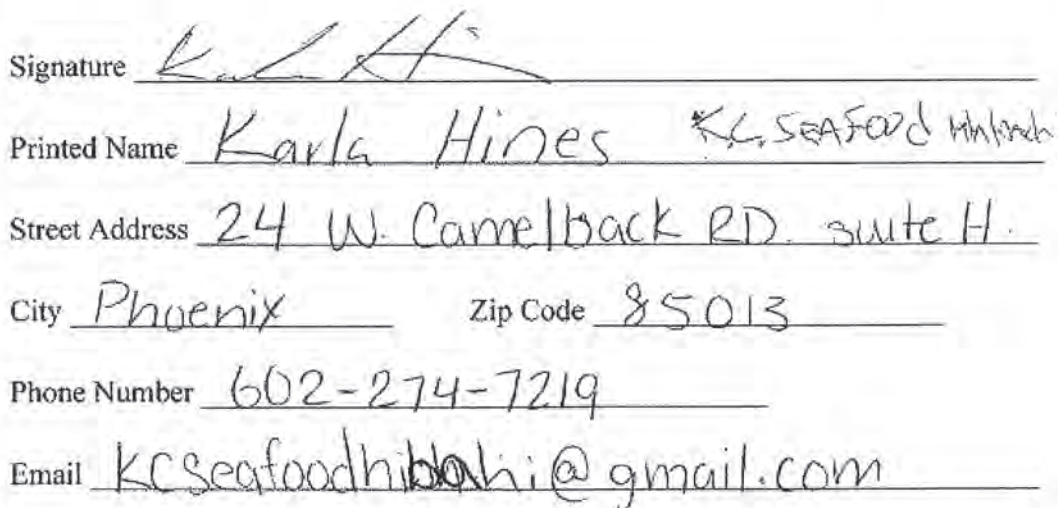 Signature
Printed Name Karla Hines K.C. SEAFOOD
Street Address 24 W. Camelback RD. suite H.
City Phoenix Zip Code 85013
Phone Number 602-274-7219
Email @gmail.com